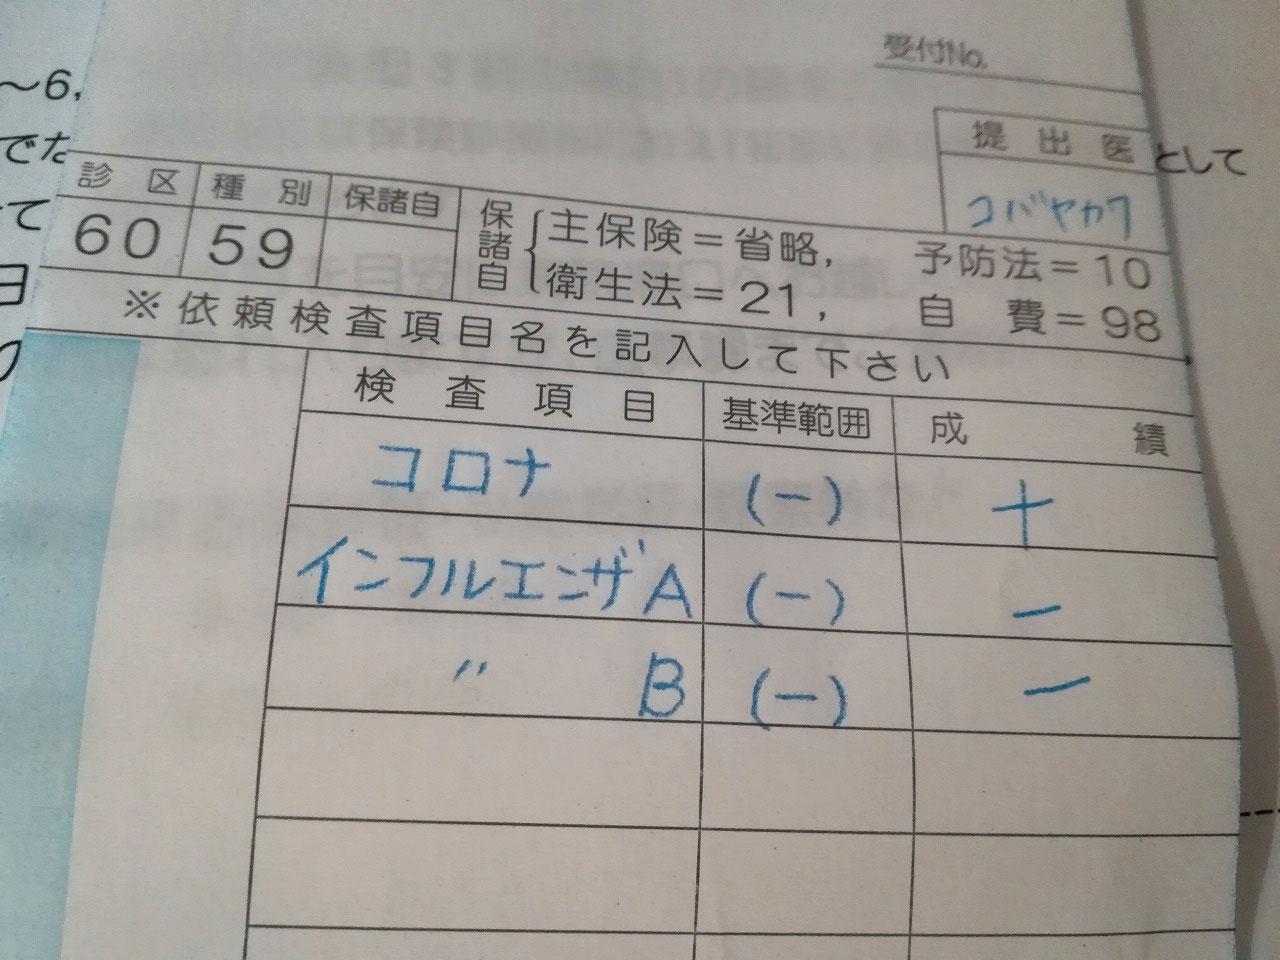 受付No.
～6,
提出医
でな
として
コバヤカワ
診区 種別 保諸自
60 59
保諸自 主保険=省略, 予防法=10
衛生法=21, 自費=98
て
日
の
※依頼検査項目名を記入して下さい
検査項目 基準範囲 成績
コロナ (-) +
インフルエンザA (-) -
〃 B (-) -